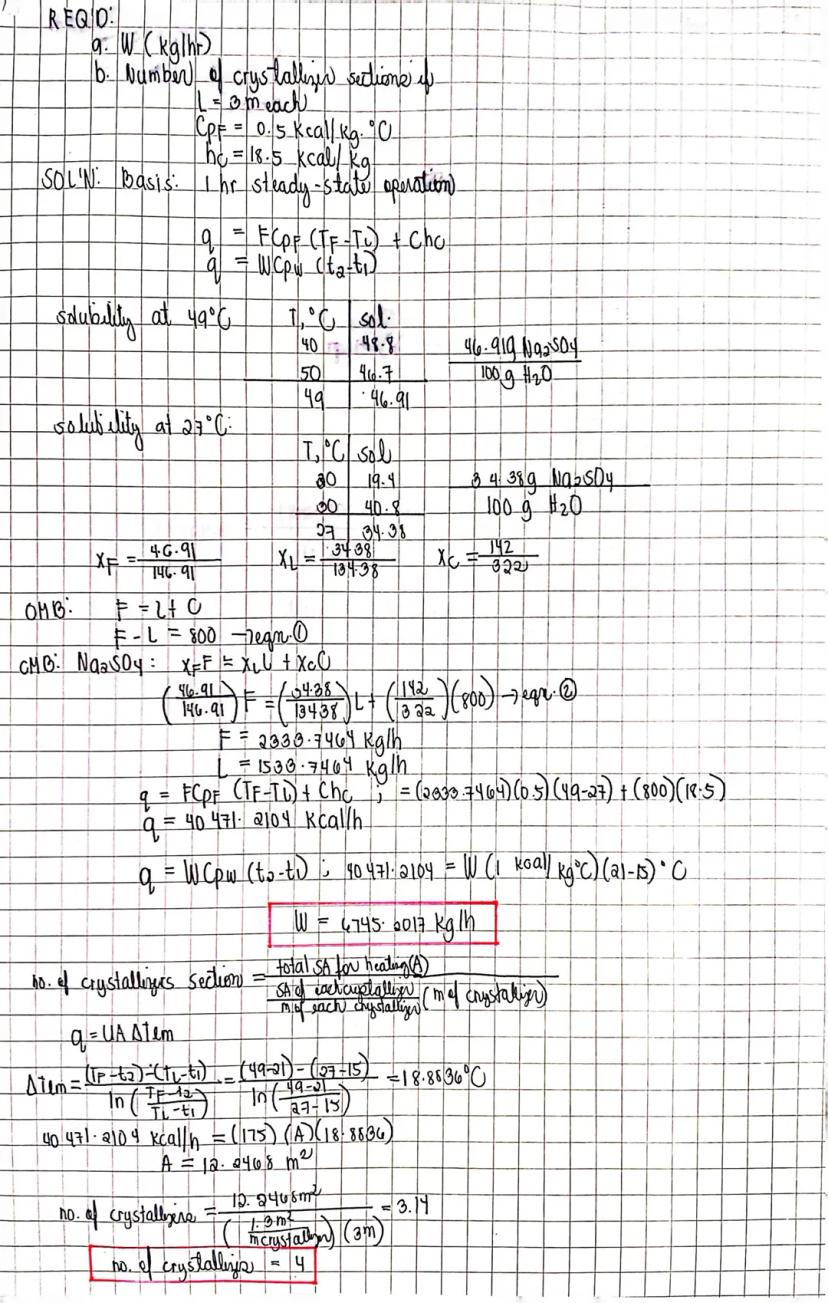 REQ'D:
a. W (kg/hr)
b. Number of crystallizer sections if
L = 3m each
CpF = 0.5 kcal/kg.°C
hc = 18.5 kcal/kg
SOL'N: Basis: 1 hr steady-state operation
q = FCpF (TF-TL) + Chc
q = WCpw (t2-t1)
solubility at 49°C
T, °C | sol.
40 | 48.8
50 | 46.7
49 | 46.91
46.91g Na2SO4
100 g H2O
solubility at 27°C:
T, °C | sol
20 | 19.4
30 | 40.8
27 | 34.38
34.38g Na2SO4
100 g H2O
XF = 46.91/146.91 XL = 34.38/134.38 XC = 142/322
OMB: F = L + C
F - L = 800 → eqn. ①
CMB: Na2SO4: XFF = XLL + XCC
(46.91/146.91) F = (34.38/134.38) L + (142/322)(800) → eqn. ②
F = 2333.7464 kg/h
L = 1533.7464 kg/h
q = FCpF (TF-TL) + Chc ; = (2333.7464)(0.5)(49-27) + (800)(18.5)
q = 40 471.2104 kcal/h
q = WCpw (t2-t1) ; 40 471.2104 = W (1 kcal/kg°C)(21-15)°C
W = 6745.2017 kg/h
no. of crystallizers section = total SA for heating(A) / SA of each crystallizer/m of each crystallizer (m of crystallizer)
q = UA ΔTem
ΔTem = (TF-t2)-(TL-t1) / ln (TF-t2/TL-t1) = (49-21) - (27-15) / ln (49-21/27-15) = 18.8836°C
40 471.2104 kcal/h = (175) (A)(18.8836)
A = 12.2468 m²
no. of crystallizers = 12.2468m² / (1.3m²/m crystallizer) (3m) = 3.14
no. of crystallizers = 4